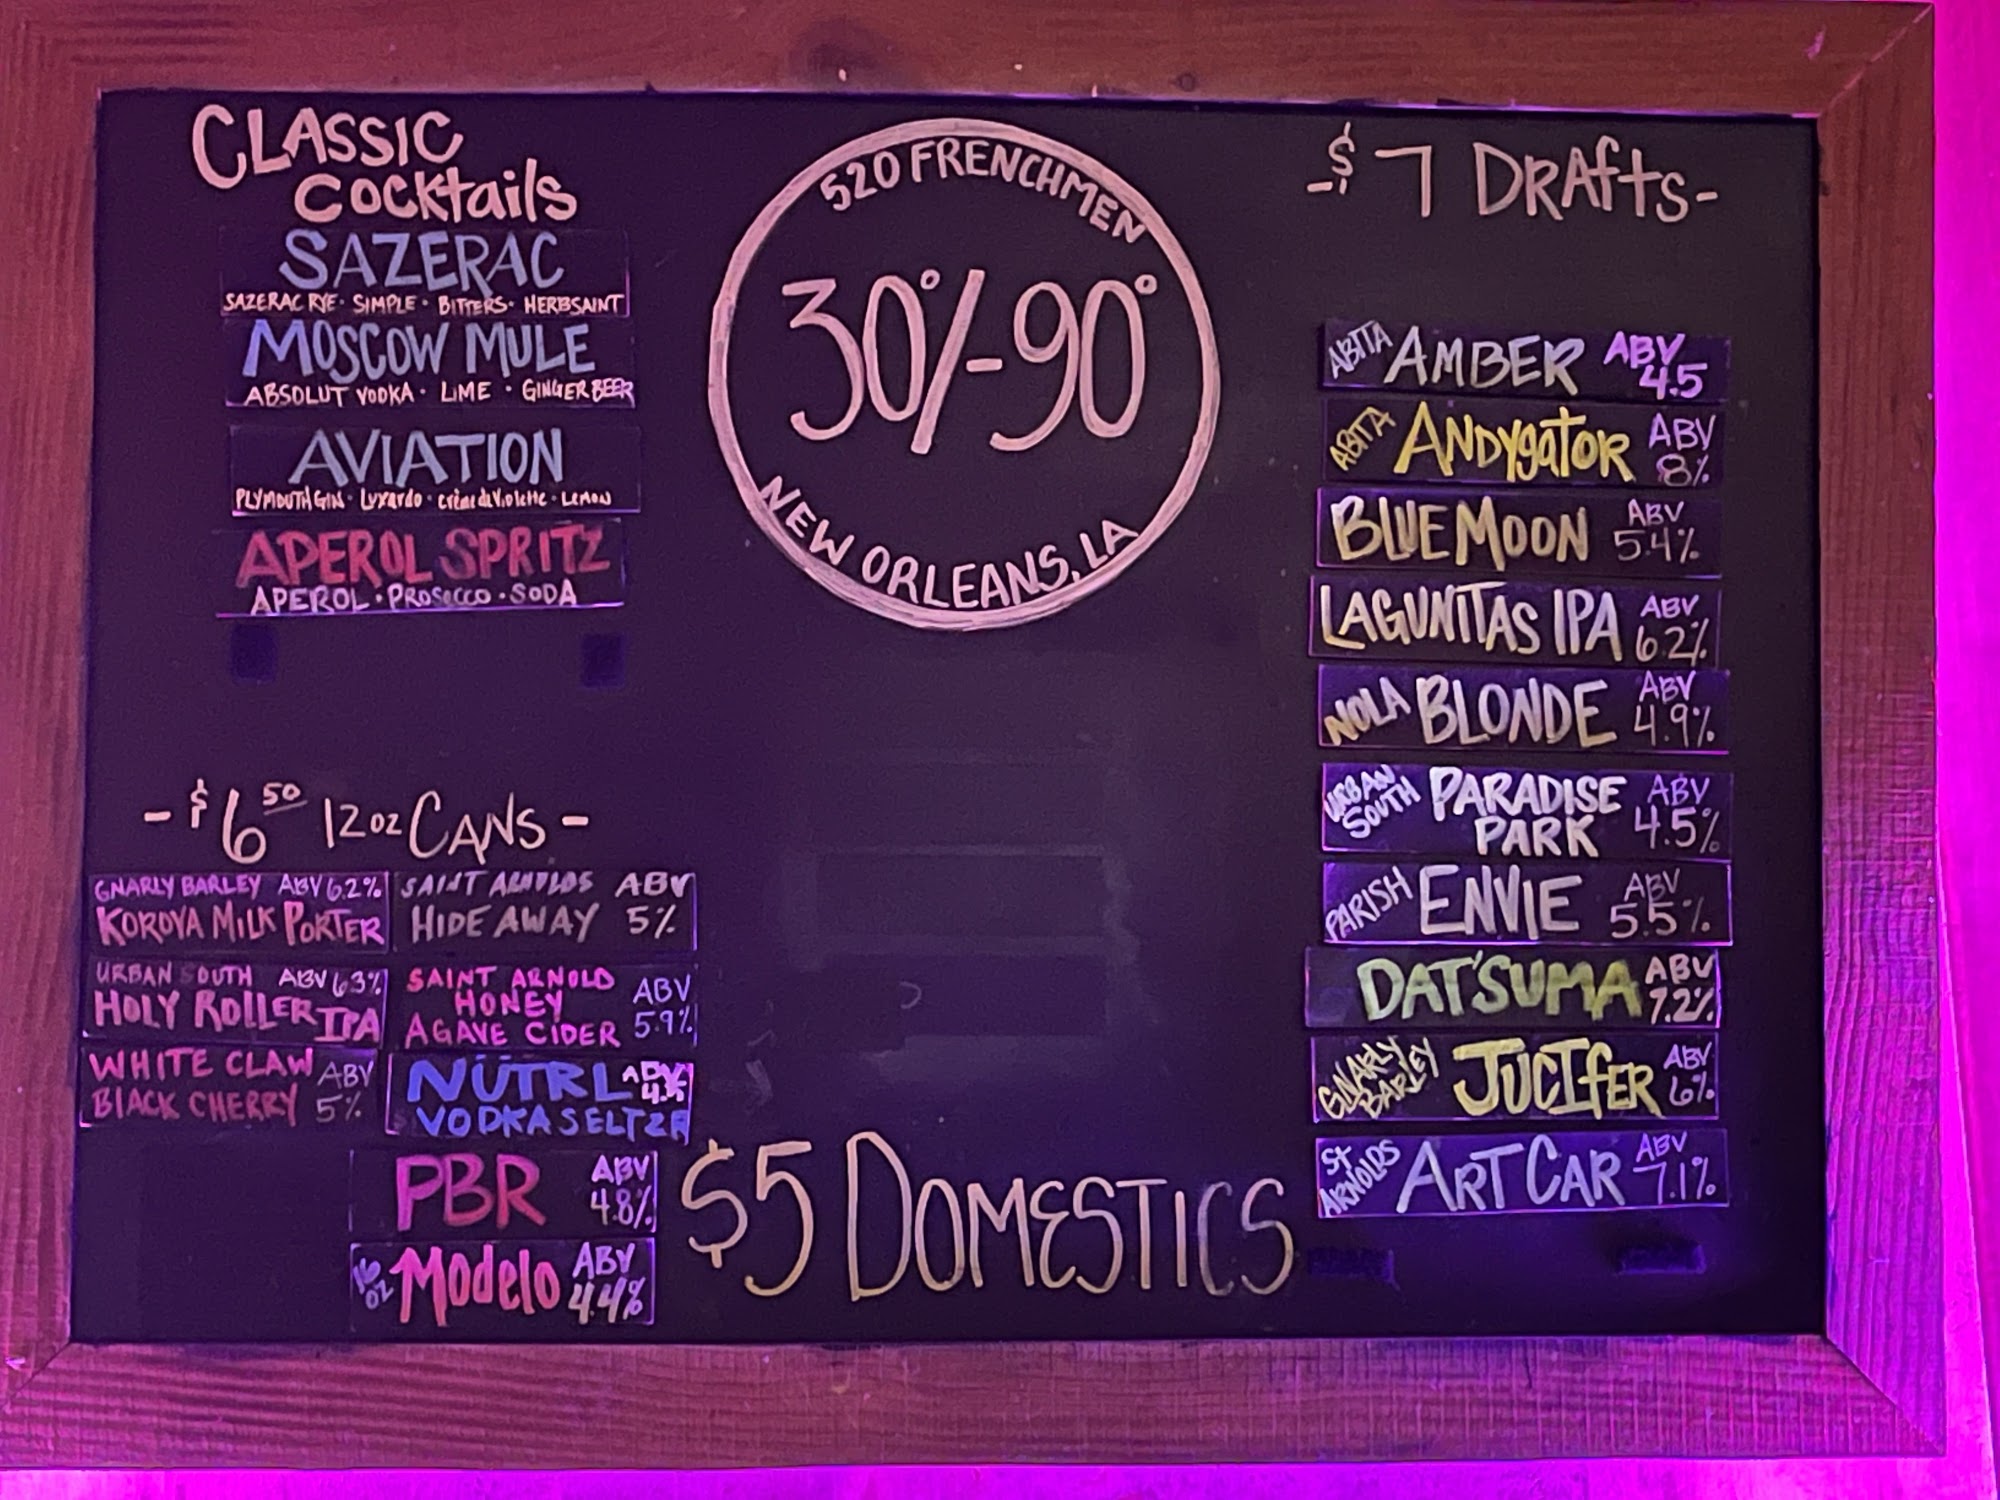 CLASSIC
COCKTAILS
SAZERAC
SAZERAC RYE · SIMPLE · BITTERS · HERBSAINT
MOSCOW MULE
ABSOLUT VODKA · LIME · GINGER BEER
AVIATION
PLYMOUTH GIN · Luxardo · crème de Violette · LEMON
APEROL SPRITZ
APEROL · PROSECCO · SODA
-$6.50 12oz CANS-
GNARLY BARLEY ABV 6.2%
KOROVA MILK PORTER
URBAN SOUTH ABV 6.3%
HOLY ROLLER IPA
WHITE CLAW
BLACK CHERRY
ABV
5%
SAINT ARNOLDS ABV
HIDE AWAY 5%
SAINT ARNOLD
HONEY
AGAVE CIDER
ABV
5.9%
NÜTRL
VODKA SELTZR
PBR
ABV
4.8%
16
OZ
Modelo
ABV
4.4%
520 FRENCHMEN
30°/-90°
NEW ORLEANS, LA
$5 DOMESTICS
-$7 DRAftS-
ABITA AMBER ABV
4.5
ABITA ANDYgATOR ABV
8%
BLUE MOON ABV
5.4%
LAGUNITAS IPA ABV
6.2%
NOLA BLONDE ABV
4.9%
URBAN
SOUTH
PARADISE
PARK
ABV
4.5%
PARISH ENVIE ABV
5.5%
DAT'SUMA ABV
7.2%
GNARLY
BARLEY
JUCIfER
ABV
6%
St
ARNOLDS
ART CAR
ABV
7.1%